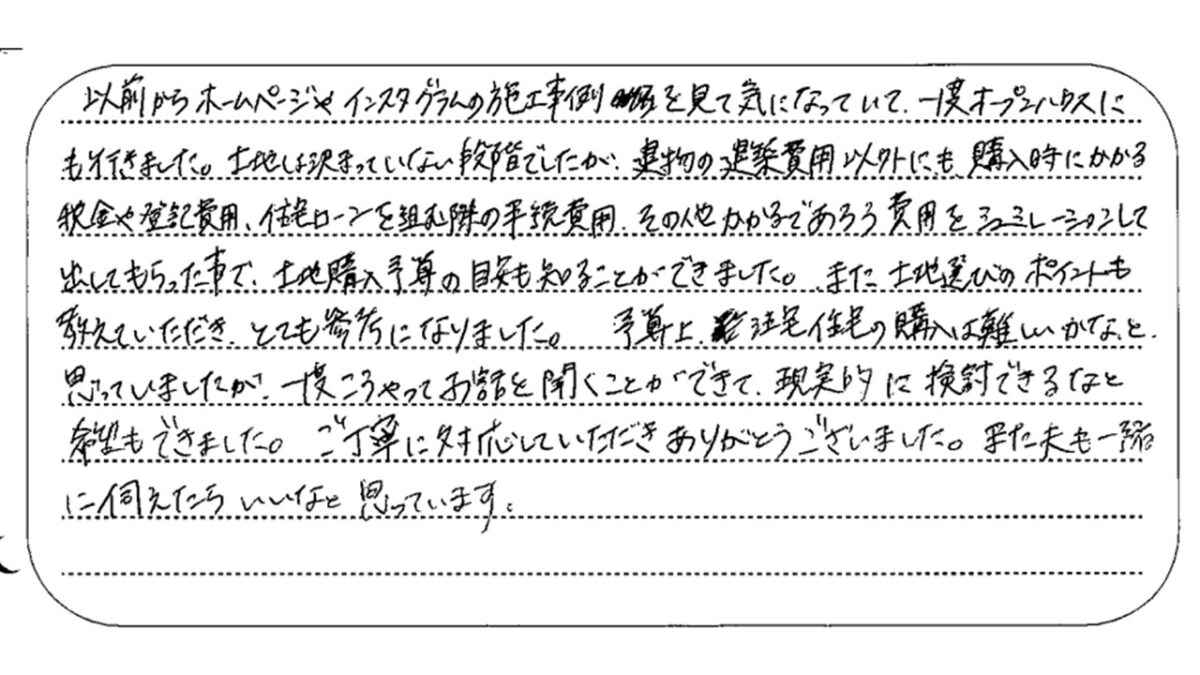 以前からホームページやインスタグラムの施工事例を見て気になっていて、一度オープンハウスに
も行きました。土地は決まっていない段階でしたが、建物の建築費用以外にも、購入時にかかる
税金や登記費用、住宅ローンを組む際の手続費用、その他かかるであろう費用をシュミレーションして
出してもらった事で、土地購入予算の目安も知ることができました。また土地選びのポイントも
教えていただき、とても参考になりました。 予算上、注宅住宅の購入は難しいかな、と
思っていましたが、一度こうやってお話を聞くことができて、現実的に検討できるなと
希望もできました。ご丁寧に対応していただきありがとうございました。また夫も一緒
に伺えたらいいなと思っています。